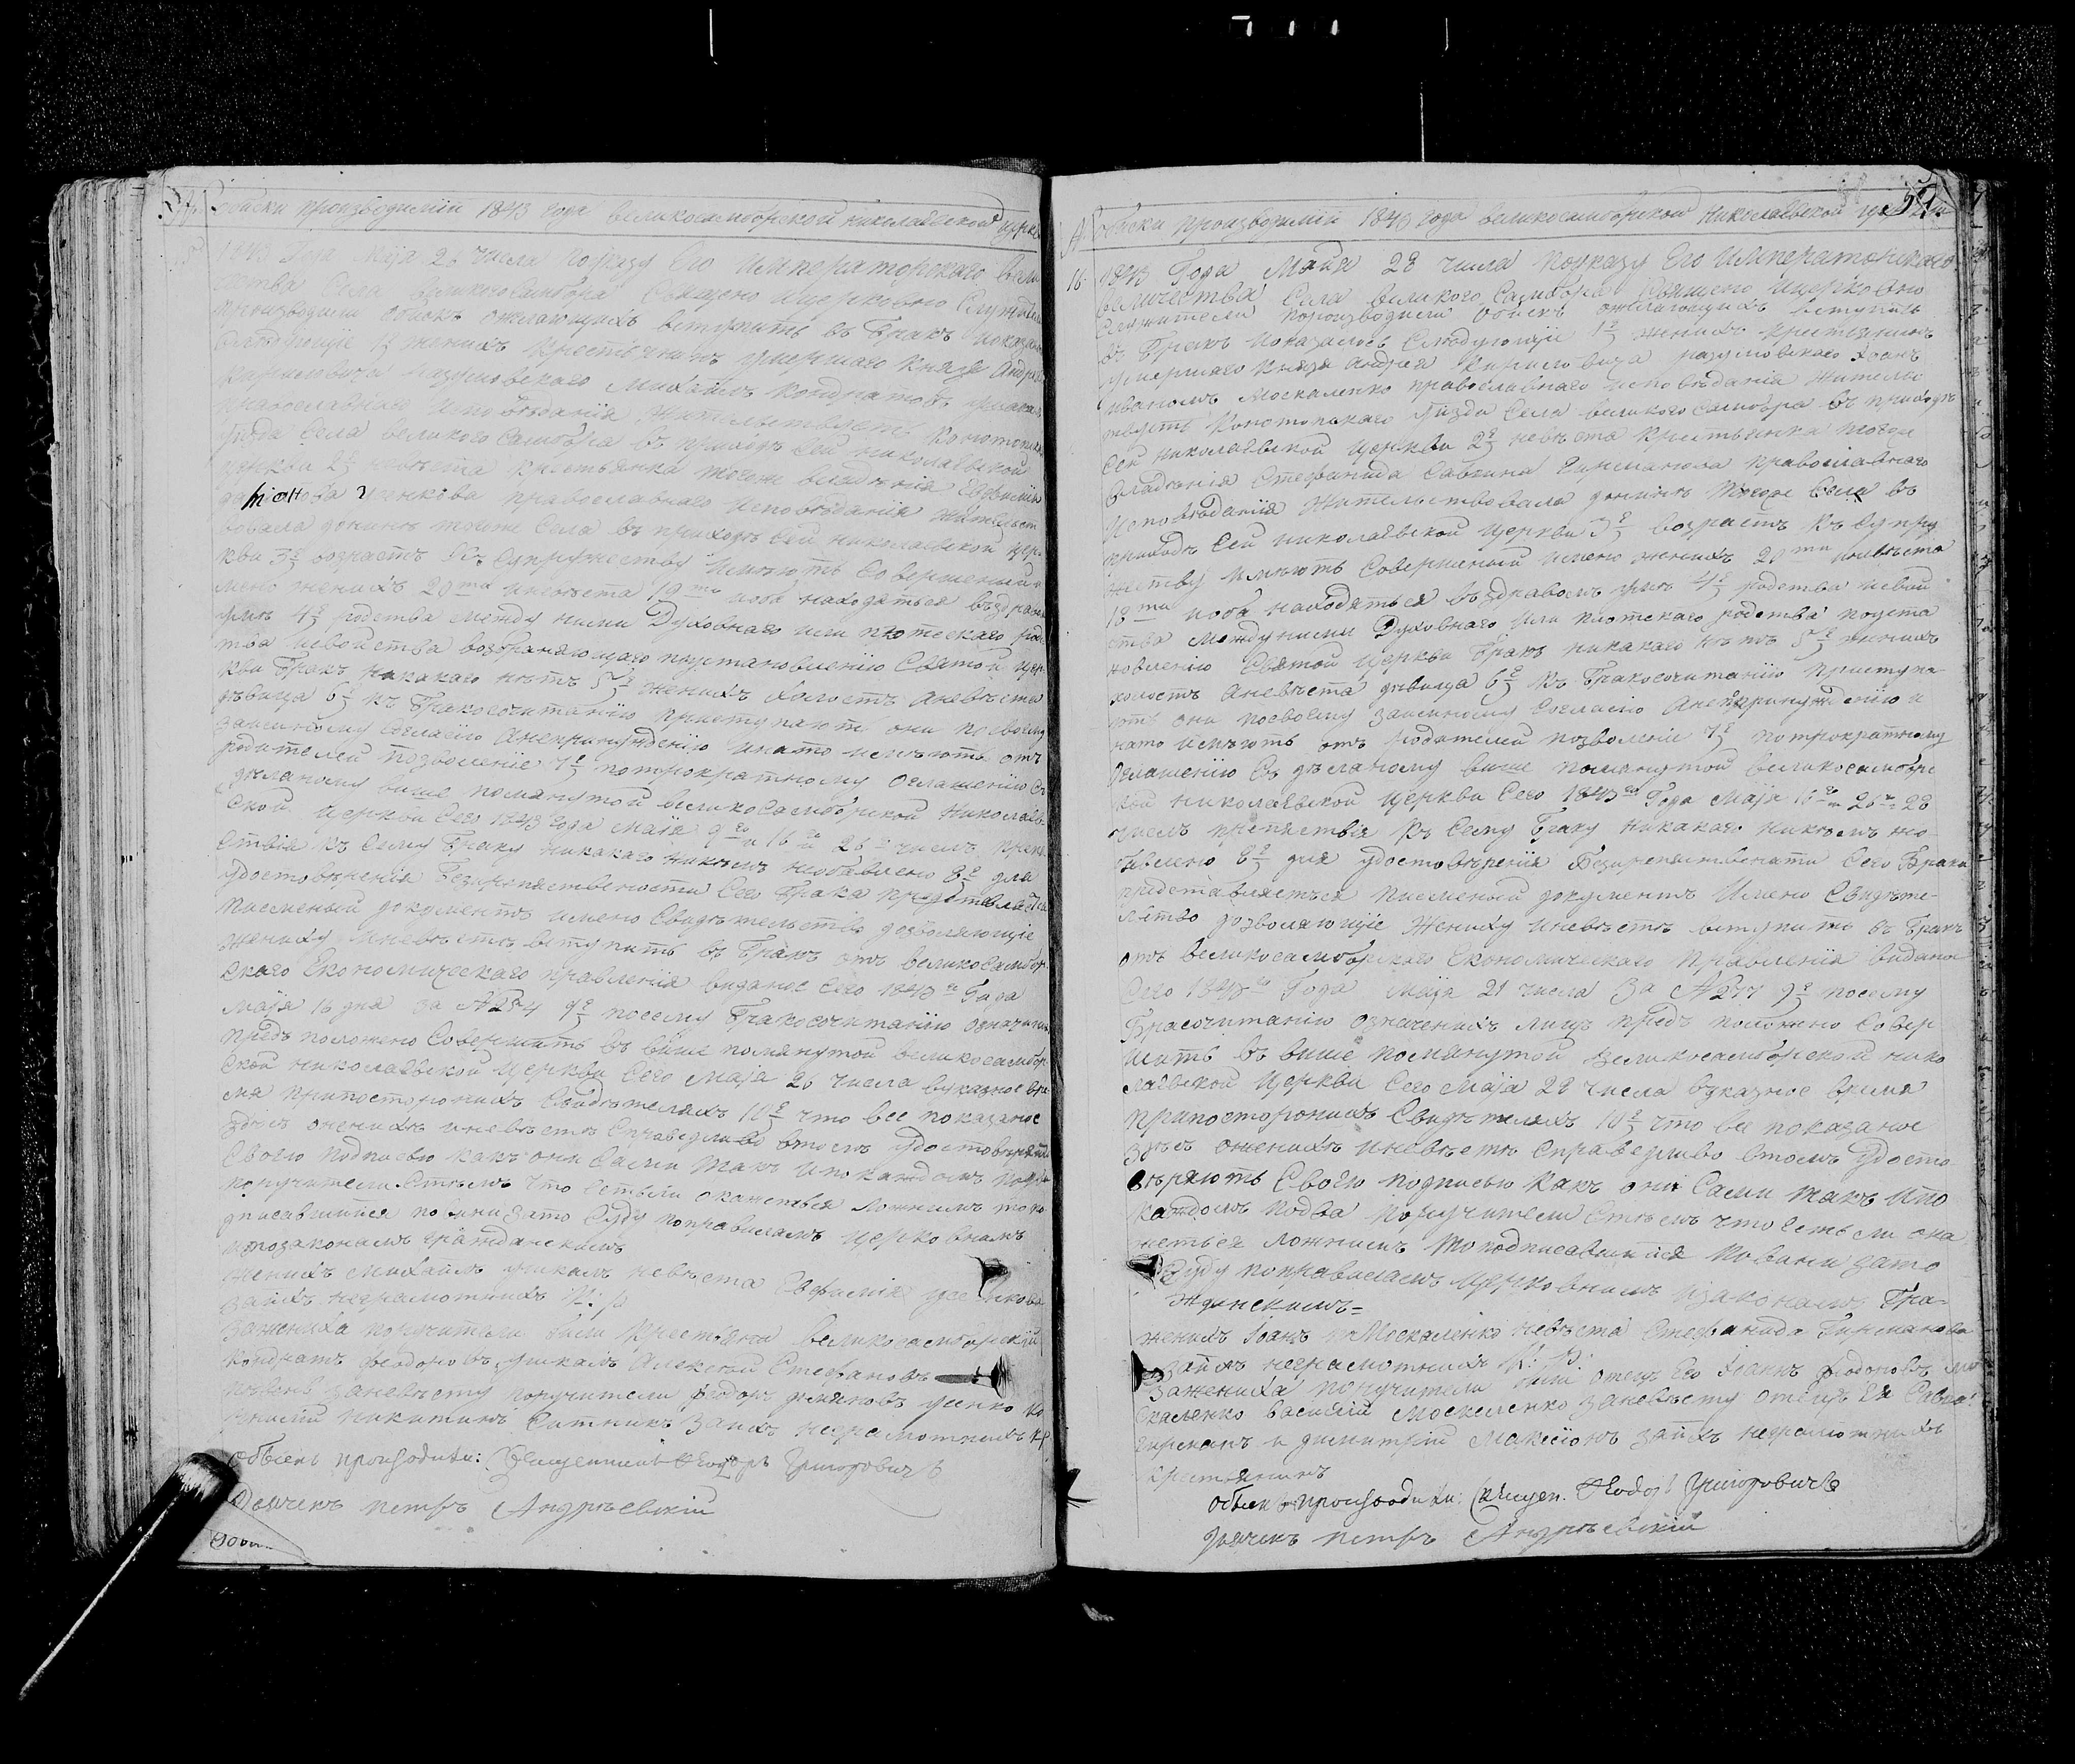 Обиски производимїи 1843 года великосамборской николаевской церкви
1843 Года Маїя 26 числа поуказу Его Императорскаго Вели
чества Села Великого Самбора Священо ицерковно Служители
производили обискъ ожелающихъ вступить въ Бракъ ипоказалось
Слѣдующїе 1е женихъ Крестьянинъ умершаго Князя Андрея
Кириловича Разумовскаго Михаилъ Кондратовъ
православнаго исповѣданїя жительствуетъ Конотопскаго
уѣзда Села Великого Самбора въ приходѣ Сей николаевской
церкви 2е невѣста крестьянка тогоже владѣнїя Евфимїя
Усенкова православнаго исповѣданїя жительст
вовала донинѣ тогоже Села въ приходѣ Сей николаевской цер
кви 3е возрастъ къ Супружеству Имѣютъ Совершенный и
мено женихъ 20ти иневѣста 19ти иоба находяться въздравомъ
умѣ 4е родства между ними Духовнаго или плотскаго родс
тва исвойства возбраняющаго поустановленїю Святой цер
кви бракъ никакаго нѣтъ 5е женихъ холостъ аневѣста
дѣвица 6е къ Бракосочитанїю приступаютъ они посвоему
заимному Согласїю Анепринужденїю инато имѣютъ отъ
родителей позволенїе 7е потрократному Оглашенїю Съ
дѣланому више помянутой великоСамборской Николаев
ской церкви Сего 1843 года маїя 9го 16го и 26го числъ препят
ствїя къ Сему Браку никакаго никѣмъ необявлено 8е для
удостовѣренїя безпрепятствености Сего брака представляеться
писменый документъ имено Свидѣтельство дозволяющїе
жениху иневѣстѣ вступить въ Бракъ отъ великоСамбор
скаго Економическаго правленїя виданое Сего 1843го Года
Маїя 16 дня за №254 9е посему Бракосочитанїю означеныхъ
предъположено Совершить въ више помянутой великосамбор
ской николаевской церкви Сего маїя 26 числа вуказное вре
мя припосторонихъ Свидѣтеляхъ 10е что все показаное
здѣсь оженихѣ иневѣстѣ Справедливо втомъ удостовѣряютъ
Своею подписью какъ они Сами такъ ипокаждомъ подва
поручители Стѣмъ что Естьли окажеться ложнымъ то по
дписавшїися повини зато Суду поправиламъ церковнымъ
ипозаконамъ гражданскимъ
женихъ Михаилъ невѣста Евфимїя Усенкова
заихъ неграмотнихъ К: р
Зажениха поручители били крестьяни великосамборскїи
Кондратъ Феодоровъ Алексѣй Стефановъ
заневѣсту поручители Федоръ Усенко
никитинъ Ситникъ заихъ неграмотнихъ Кр
Обыскъ производили: Священникъ Феодоръ Григоровичъ
Дьячекъ петръ Андрѣевскїй
59
Обиски производимїи 1843 года великосамборской Николаевской церкви
16. 1843 Года Маїя 28 числа поуказу Его Императорскаго
величества Села великого Самбора Священо ицерковно
Служители производили обискъ ожелающихъ вступить
въ Бракъ ипоказалось Слѣдующїе 1е женихъ крестьянинъ
умершаго Князя Андрея Кириловича разумовскаго Іоанъ
ивановъ Москаленко православнаго исповѣданїя жительс
твуетъ Конотопскаго уѣзда Села великого Самбора въ приходѣ
Сей николаевской церкви 2е невѣста крестьянка тогоже
владѣнїя Стефанида Савина Гирманова православнаго
исповѣданїя жительствовала донинѣ тогоже Села въ
приходѣ Сей николаевской церкви 3е возрастъ къ Супру
жеству имѣютъ Совершеный имено женихъ 20ти иневѣста
18ти иоба находяться въздравомъ умѣ 4е родства исвой
ства между ними Духовнаго или плотскаго родства поуста
новленїю Святой церкви бракъ никакаго нѣтъ 5е женихъ
холостъ аневѣста дѣвица 6е къ Бракосочитанїю приступа
ютъ они посвоему заимному Согласїю Анепринужденїю и
нато имѣютъ отъ родителей позволенїе 7е потрократному
Оглашенїю Съ дѣланому више помянутой великосамбор
ской николаевской церкви Сего 1843го Года Маїя 16го 26го и 28
числъ препятствїя къ Сему Браку никакаго никѣмъ необ
явлено 8е для удостовѣренїя безпрепятствености Сего Брака
представляеться писменый документъ имено Свидѣте-
льство дозволяющїе жениху иневѣстѣ вступить въ Бракъ
отъ великосамборскаго Економическаго правленїя видано
Сего 1843го Года Маїя 21 числа за №277 9е посему
Брасочитанїю означенихъ лицъ предъ положено Совер
шить въ више помянутой великосамборской нико
лаевской церкви Сего Маїя 28 числа вуказное время
припосторонихъ Свидѣтеляхъ 10е что все показаное
здѣсь оженихѣ иневѣстѣ Справедливо втомъ удосто
вѣряютъ Своею подписью какъ они Сами такъ ипо
каждомъ подва поручители Стѣмъ что Естьли ока
жеться ложнимъ то подписавшїися повини зато
Суду поправиламъ церковнимъ изаконамъ Гра-
жданскимъ=
женихъ Іоанъ Москаленко невѣста Стефанида Гирманова
заихъ неграмотнихъ К: р:
Зажениха поручители били отецъ Его Іоанъ Федоровъ Мо
скаленко василїй Москаленко заневѣсту отецъ Ея Савва
Гирманъ и димитрїй заихъ неграмотнихъ
крестьянинъ
Обыскъ производили: Священ. Феодоръ Григоровичъ
Дьячекъ петръ Андрѣевскїй